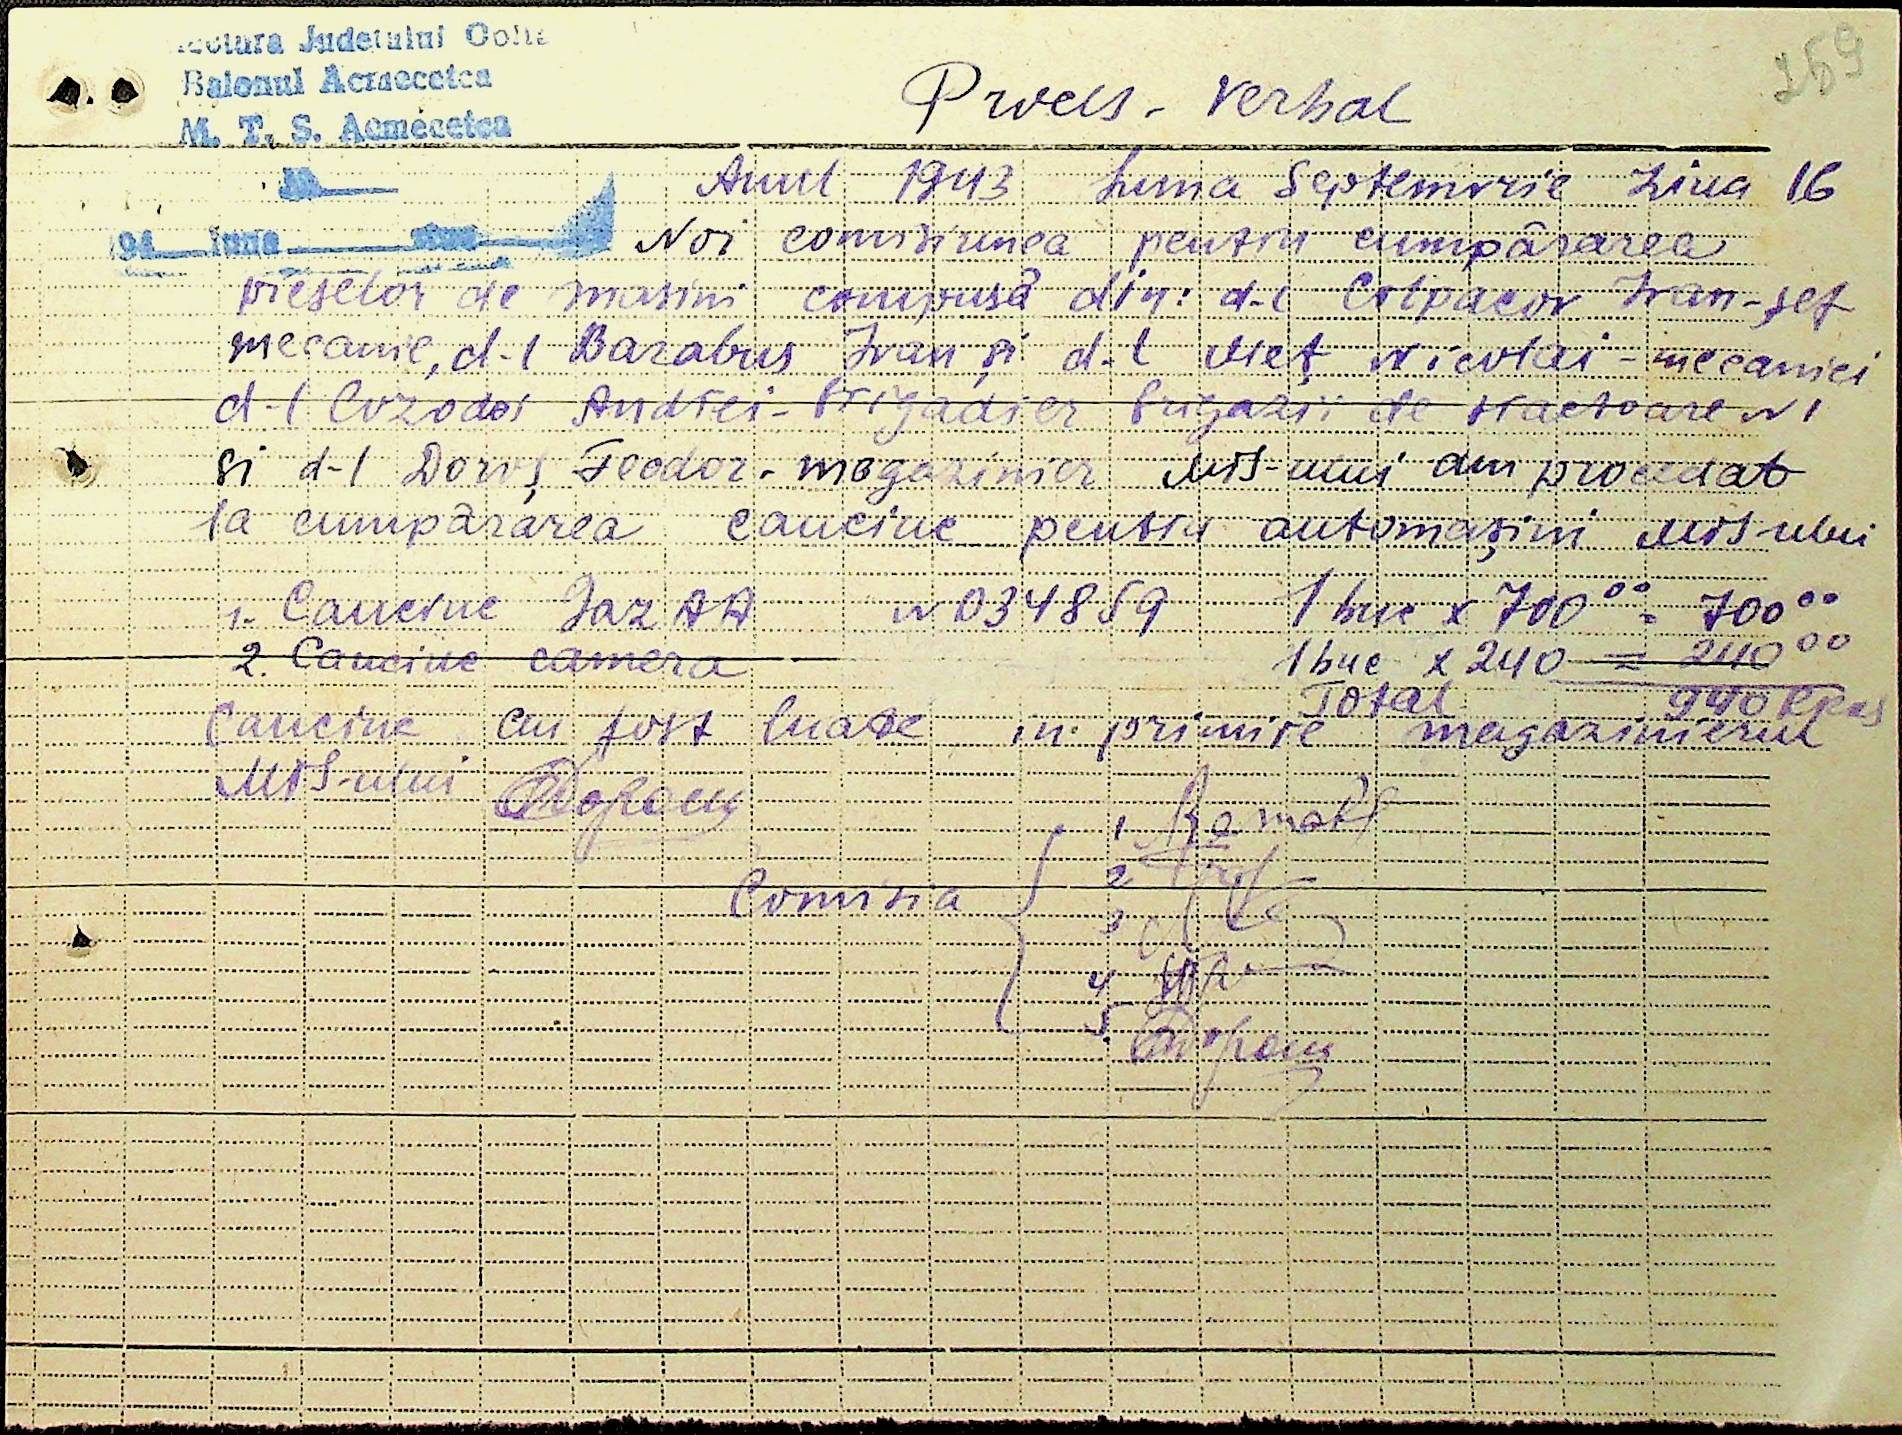 Judetului
Raionul Acmecetca
M. T. S. Acmecetca
259
Proces-Verbal
194 luna ziua
Anul 1943 luna Septemvrie Ziua 16
Noi comisiunea pentru cumpărarea
pieselor de masini compusă din: d-l Colpacov Ivan-șef
mecanic, d-l Barabas Ivan și d-l Meț Nicolai-mecanici
d-l Cozodoi Andrei-brigadier brigazii de tractoare N1
și d-l Doroș Feodor-magazinier MTS-ului am procedat
la cumpărarea cauciuc pentru automașini MTS-ului
1. Cauciuc Gaz AA N 034859 1 buc x 700⁰⁰ = 700⁰⁰
2. Cauciuc camera 1 buc x 240 = 240⁰⁰
Total 940
Cauciuc au fost luate in primire magazinierul
MTS-ului
Comisia
1
2
3
4
5.